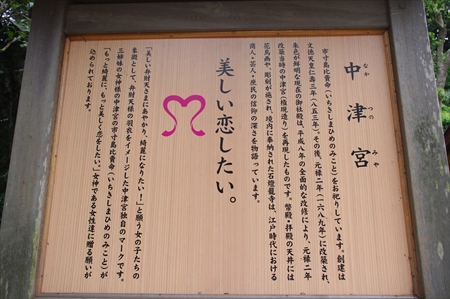 中津宮
なか つの みや
市寸島比賣命(いちきしまひめのみこと)をお祀りしています。創建は
文徳天皇仁壽三年(八五三年)、その後、元禄二年(一六八九年)に改築され、
朱色が鮮明な現在の御社殿は、平成八年の全面的な改修により、元禄二年
改築当時の中津宮(権現造り)を再現したものです。幣殿・拝殿の天井には
花鳥画や、彫刻が施され、境内に奉納された石燈籠等は、江戸時代における
商人・芸人・庶民の信仰の深さを物語っています。
美しい恋したい。
「美しい弁財天さまにあやかり、綺麗になりたい!」と願う女の子たちの
象徴として、弁財天様の羽衣をイメージした中津宮独自のマークです。
三姉妹の女神様の中津宮の市寸島比賣命(いちきしまひめのみこと)が
「もっと綺麗に、もっと美しく恋をしたい。」女神である女性達に贈る願いが
込められております。